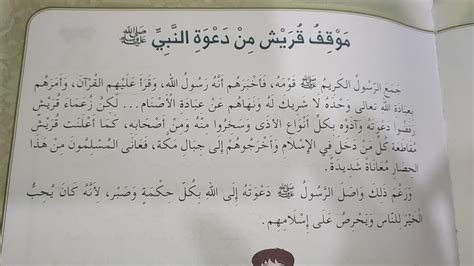 مَوْقِفُ قُرَيْشٍ مِنْ دَعْوَةِ النَّبِيِّ ﷺ
جَمَعَ الرَّسُولُ الكَرِيمُ ﷺ قَوْمَهُ، فَأَخْبَرَهُم أَنَّهُ رَسُولُ اللهِ، وَقَرَأَ عَلَيْهِم القُرْآنَ، وَأَمَرَهُم
بِعِبَادَةِ اللهِ تَعَالَى وَحْدَهُ لَا شَرِيكَ لَهُ وَنَهَاهُم عَنْ عِبَادَةِ الأَصْنَامِ... لَكِنَّ زُعَمَاءَ قُرَيْشٍ
رَفَضُوا دَعْوَتَهُ وَآذَوْهُ بِكُلِّ أَنْوَاعِ الأَذَى وَسَخِرُوا مِنْهُ وَمِنْ أَصْحَابِهِ، كَمَا أَعْلَنَتْ قُرَيْشٌ
مُقَاطَعَةَ كُلِّ مَنْ دَخَلَ فِي الإِسْلَامِ وَأَخْرَجُوهُمْ إِلَى جِبَالِ مَكَّةَ، فَعَانَى المُسْلِمُونَ مِنْ هَذَا
الحِصَارِ مُعَانَاةً شَدِيدَةً.
وَرَغْمَ ذَلِكَ وَاصَلَ الرَّسُولُ ﷺ دَعْوَتَهُ إِلَى اللهِ بِكُلِّ حِكْمَةٍ وَصَبْرٍ، لِأَنَّهُ كَانَ يُحِبُّ
الخَيْرَ لِلنَّاسِ وَيَحْرِصُ عَلَى إِسْلَامِهِم.